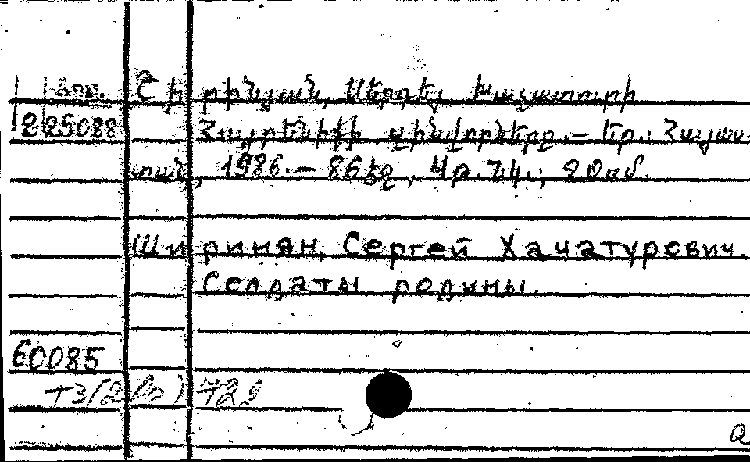 Շիրինյան, Սերգեյ Խաչատուրի
225088 Հայրենիքի զինվորները.— Եր.: Հայաս
տան, 1986.— 86 էջ, նկ.; 20 սմ.
Ширинян, Сергей Хачатурович.
Солдаты родины.
60085